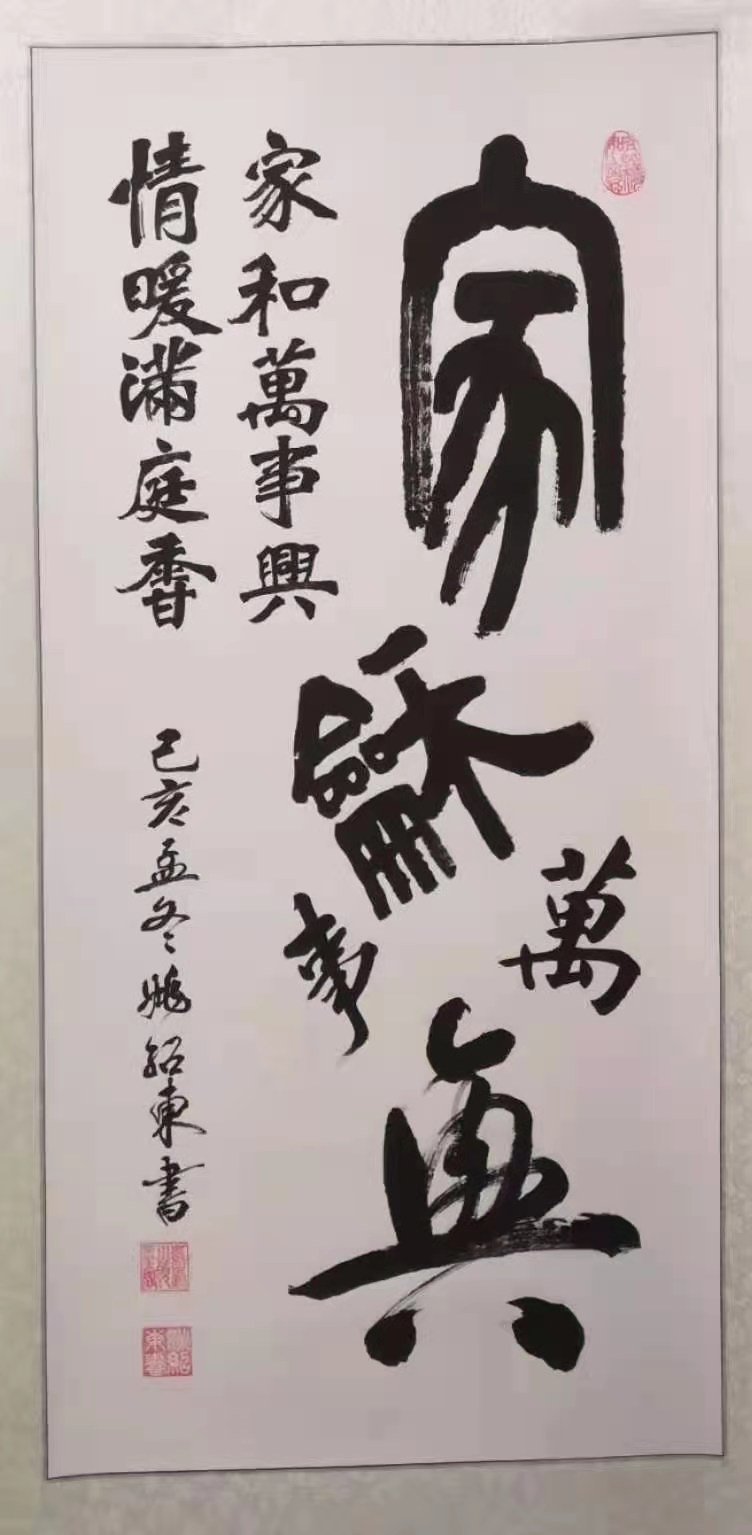 家龢萬事興
家和萬事興
情暖滿庭香
己亥孟冬姚紹東書
姚紹東書